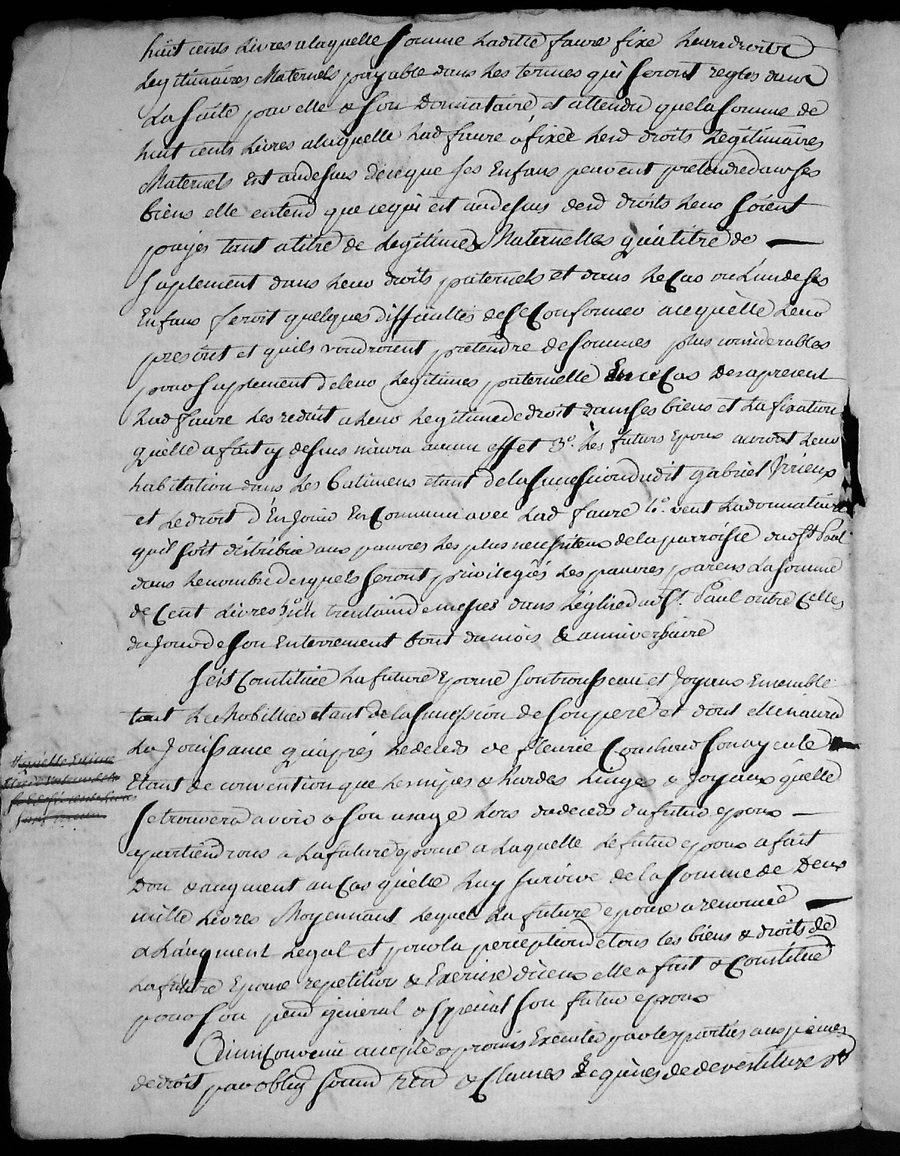 huit cents Livres alaquelle Somme Laditte faure fixe Leurs droits
Legitimaires Maternels payable dans Les termes qui Seront regles dans
La Suite par elle & Son Donnataire et attendu que la Somme de
huit cents Livres alaquelle Lad faure a fixée Lesd droits Legitimaires
Maternels Est au dessus de ce que Ses Enfans peuvent pretendre dans Ses
biens elle entend que ce qui est au dessus desd droits Leur Soient
payés tant a titre de Legitimes Maternelles qu'a titre de
Suplement dans Leurs droits paternels et dans Le Cas ou L'un de Ses
Enfans feroit quelques difficultés de Se Conformer a ce qu'elle Leur
prescrit et qu'ils voudroient pretendre de Sommes plus considerables
pour Suplement de Leur Legitimes paternelle En ce Cas des apresent
Lad faure Les reduit a Leur Legitime de droit dans Ses biens et La fixation
qu'elle a fait cy dessus n'aura aucun effet 3°. Les futurs Epoux auront Leur
habitation dans Les Batimens etant de la Succession dudit Gabriel
et Le droit D'En Jouir En Commun avec Lad faure veut La donnatrice
qu'il Soit distribué aux pauvres Les plus necessiteux de la parroisse dud St. Paul
dans Le nombre desquels Seront privilegiés Les pauvres parens La Somme
de Cent Livres un trentain de messes dans L'église dud St. Paul outre Celles
du Jour de Son Enterrement bout du mois & anniversaire
Se'st Constituée La future Epouse Son trousseau et Joyaux Ensemble
tout Le Mobillier etant de la Succession de Son pere et dont elle n'aura
La Jouissance qu'après Le deceds de fleurie Son ayeule
Etant de convention que Les nipes & hardes Linges & Joyaux qu'elle
Se trouvera avoir a Son usage Lors du deceds du futur epoux
apartiendrons a La future epouse a Laquelle Le futur epoux a fait
Don & augment au Cas qu'elle Luy Survive de la Somme de Deux
mille Livres Moyennant Lequel La future epouse a renoncé
a L'augment Legal et pour la perception de tous Les biens & droits de
La future Epouse repetition & Exercice d'iceux elle a fait & Constitué
pour Son general & Special Son futur epoux
Ainsi Convenu accepté & promis Executer par Les parties aux peines
de droit par oblig Soum & Clauses de devestiture &